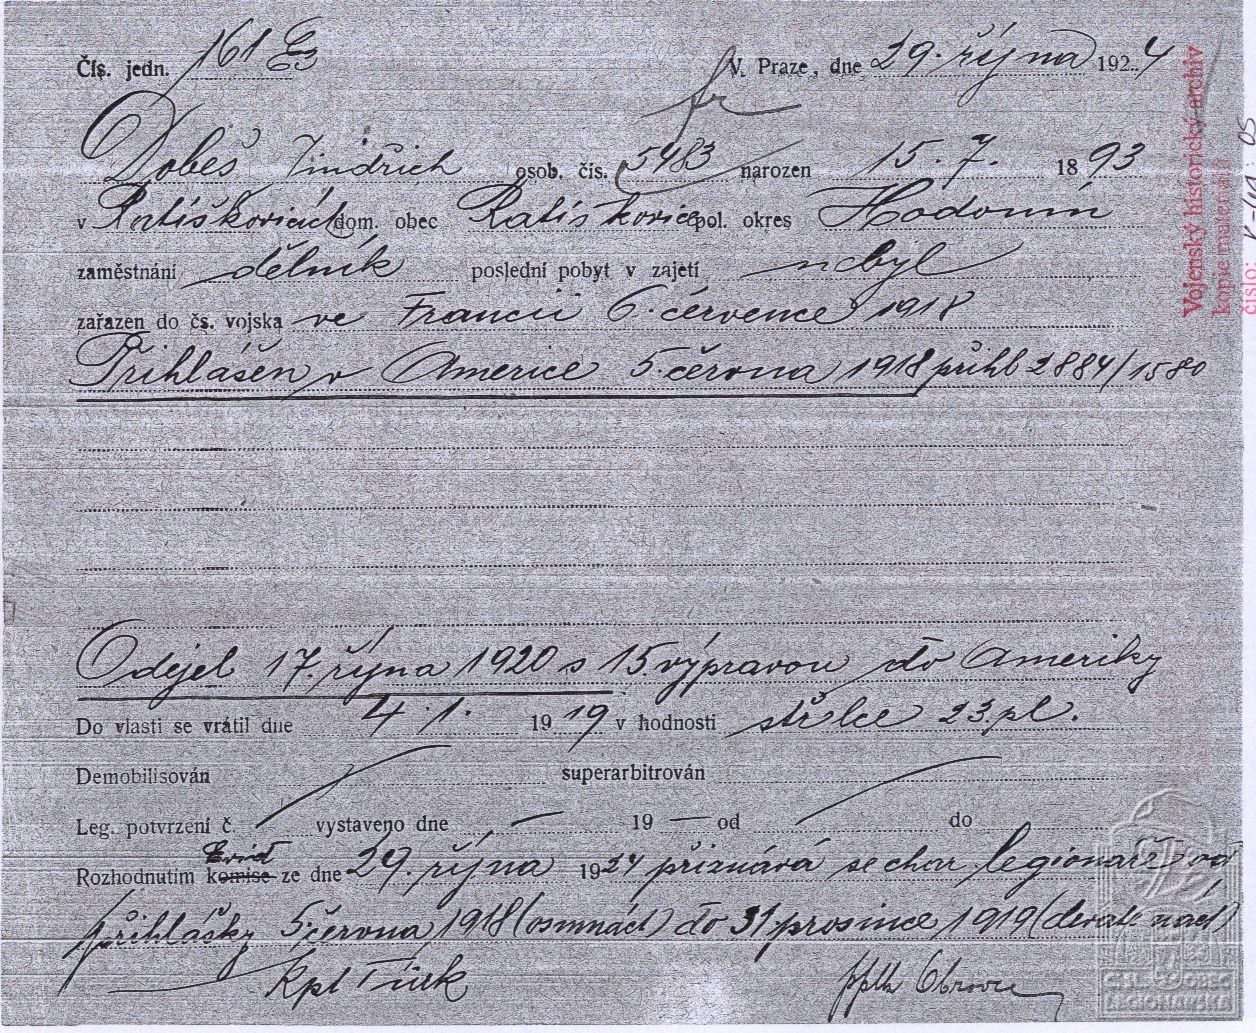 Čís. jedn. 161 V Praze, dne 29. října 1924
Dobeš Jindřich osob. čís. 5483 narozen 15. 7. 1893
v Ratíškovicích dom. obec Ratíškovice pol. okres Hodonín
zaměstnání dělník poslední pobyt v zajetí nebyl
zařazen do čs. vojska ve Francii 6. července 1918
Přihlášen v Americe 5. června 1918 přihl 2884/1580
Odejel 17. října 1920 s 15. výpravou do Ameriky
Do vlasti se vrátil dne 4. 1. 1919 v hodnosti střelce 23. pl.
Demobilisován superarbitrován
Leg. potvrzení č. vystaveno dne — 19 — od do
Evid
Rozhodnutím komise ze dne 29. října 1924 přiznává se char legionáře od
přihlášky 5. června 1918 (osmnáct) do 31. prosince 1919 (devatenáct)
kpt Türk
Vojenský historický archiv
kopie materiálů
číslo:
ČSL. OBEC
LEGIONÁŘSKÁ